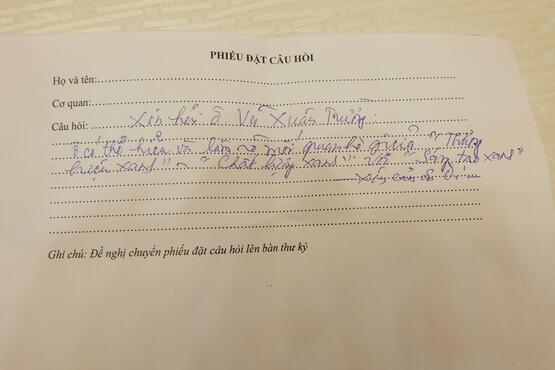 PHIẾU ĐẶT CÂU HỎI
Họ và tên:
Cơ quan:
Câu hỏi: Xin hỏi ô Vũ Xuân Trường.
Ô có thể hiểu và làm rõ mối quan hệ giữa "Thương
hiệu xanh" ~ "Chất lượng xanh" và "Sáng tạo xanh"
Xin cảm ơn
Ghi chú: Đề nghị chuyển phiếu đặt câu hỏi lên bàn thư ký